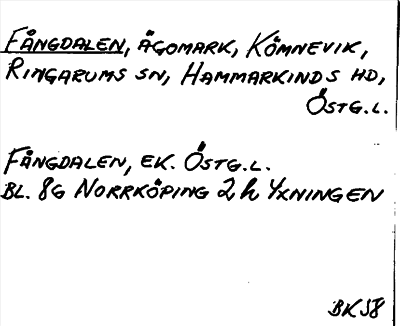 FÅNGDALEN, ÄGOMARK, KÖMNEVIK,
RINGARUMS SN, HAMMARKINDS HD,
ÖSTG.L.
FÅNGDALEN, EK. ÖSTG.L.
BL. 8G NORRKÖPING 2h YXNINGEN
BK58